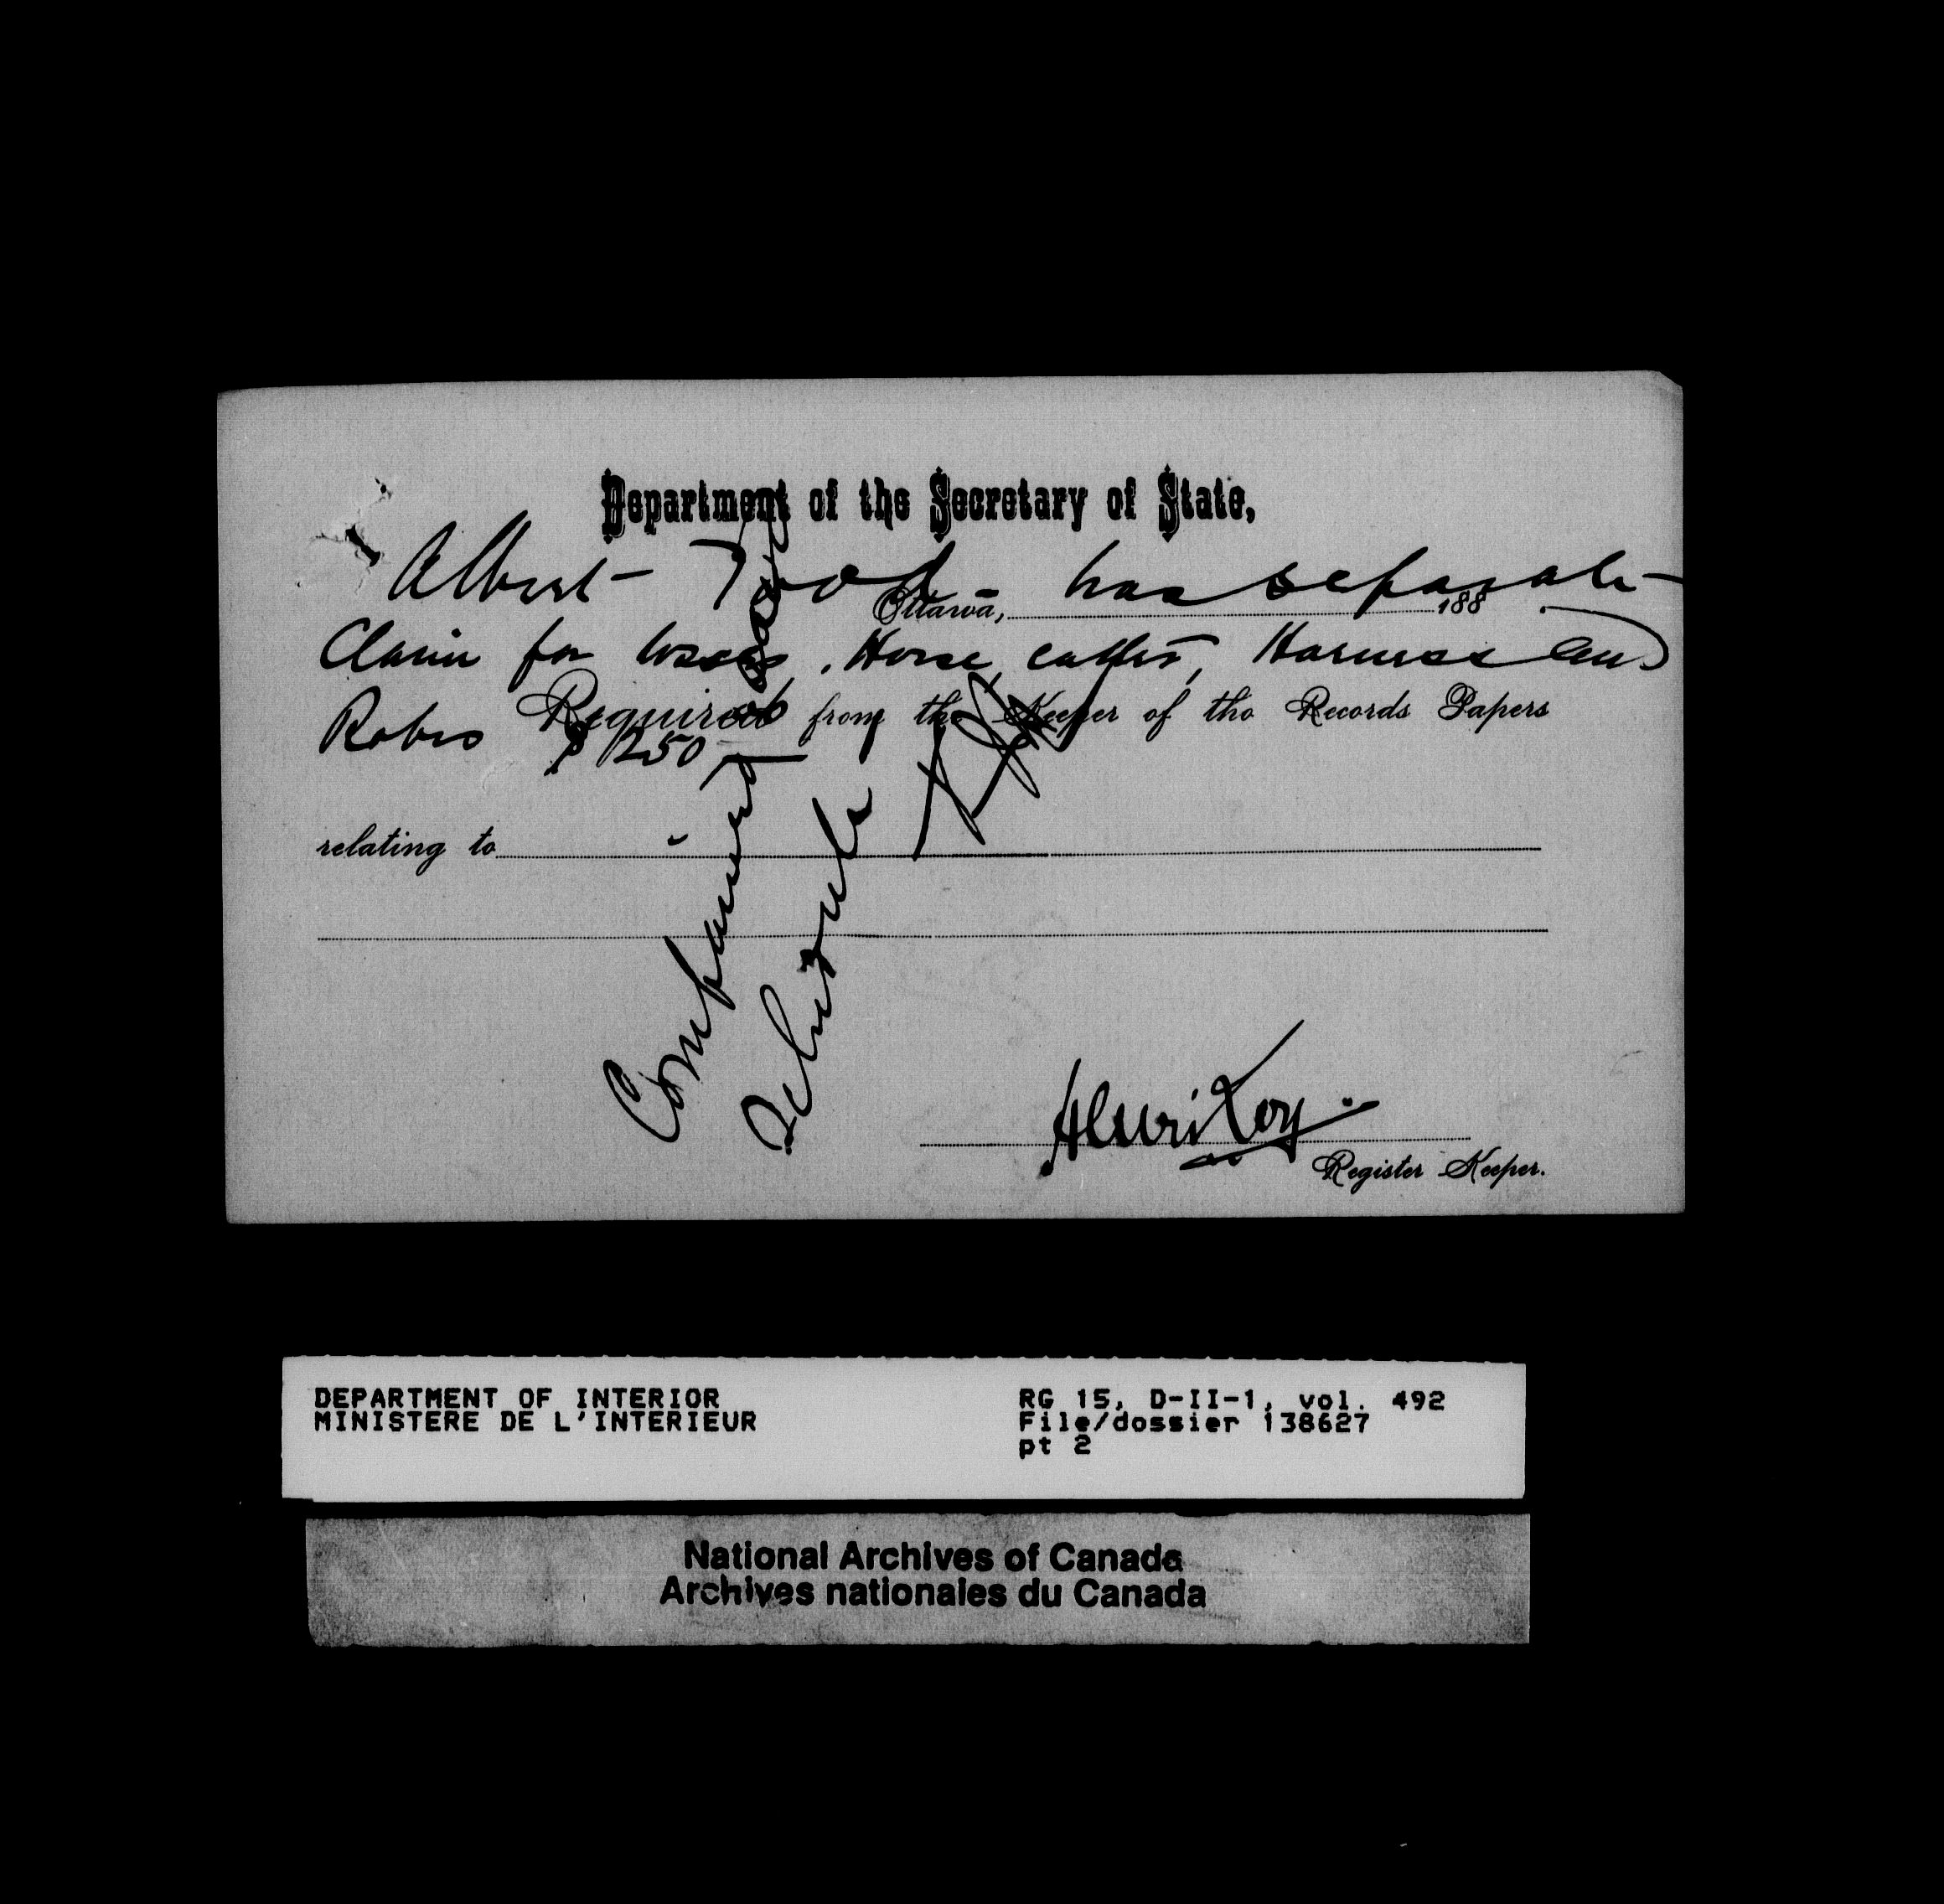 Department of the Secretary of State,
Albert Tod has separate
Ottawa, 188
Claim for losses, Horse, cutter, Harness and
Required from the Keeper of the Records Papers
Robes $ 250
relating to
Compained
Schedule
Henri Roy
Register Keeper.
DEPARTMENT OF INTERIOR
MINISTERE DE L'INTERIEUR
RG 15, D-II-1, vol. 492
File/dossier 138627
pt 2
National Archives of Canada
Archives nationales du Canada